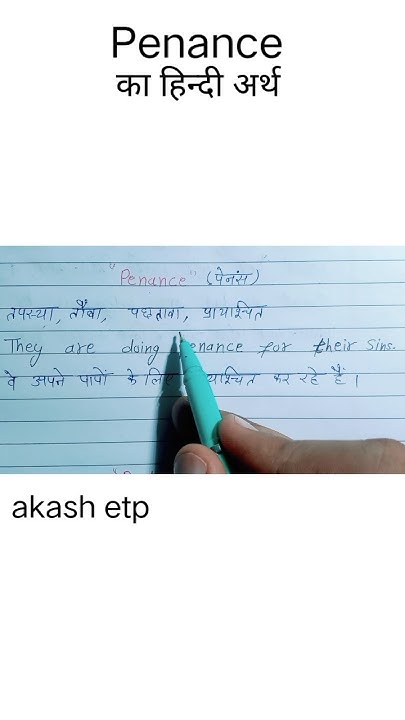 Penance
का हिन्दी अर्थ
"Penance" (पेनंस)
तपस्या, तौबा, पछतावा, प्रायश्चित
They are doing enance for their Sins.
वे अपने पापों के लि यश्चित कर रहे हैं।
akash etp